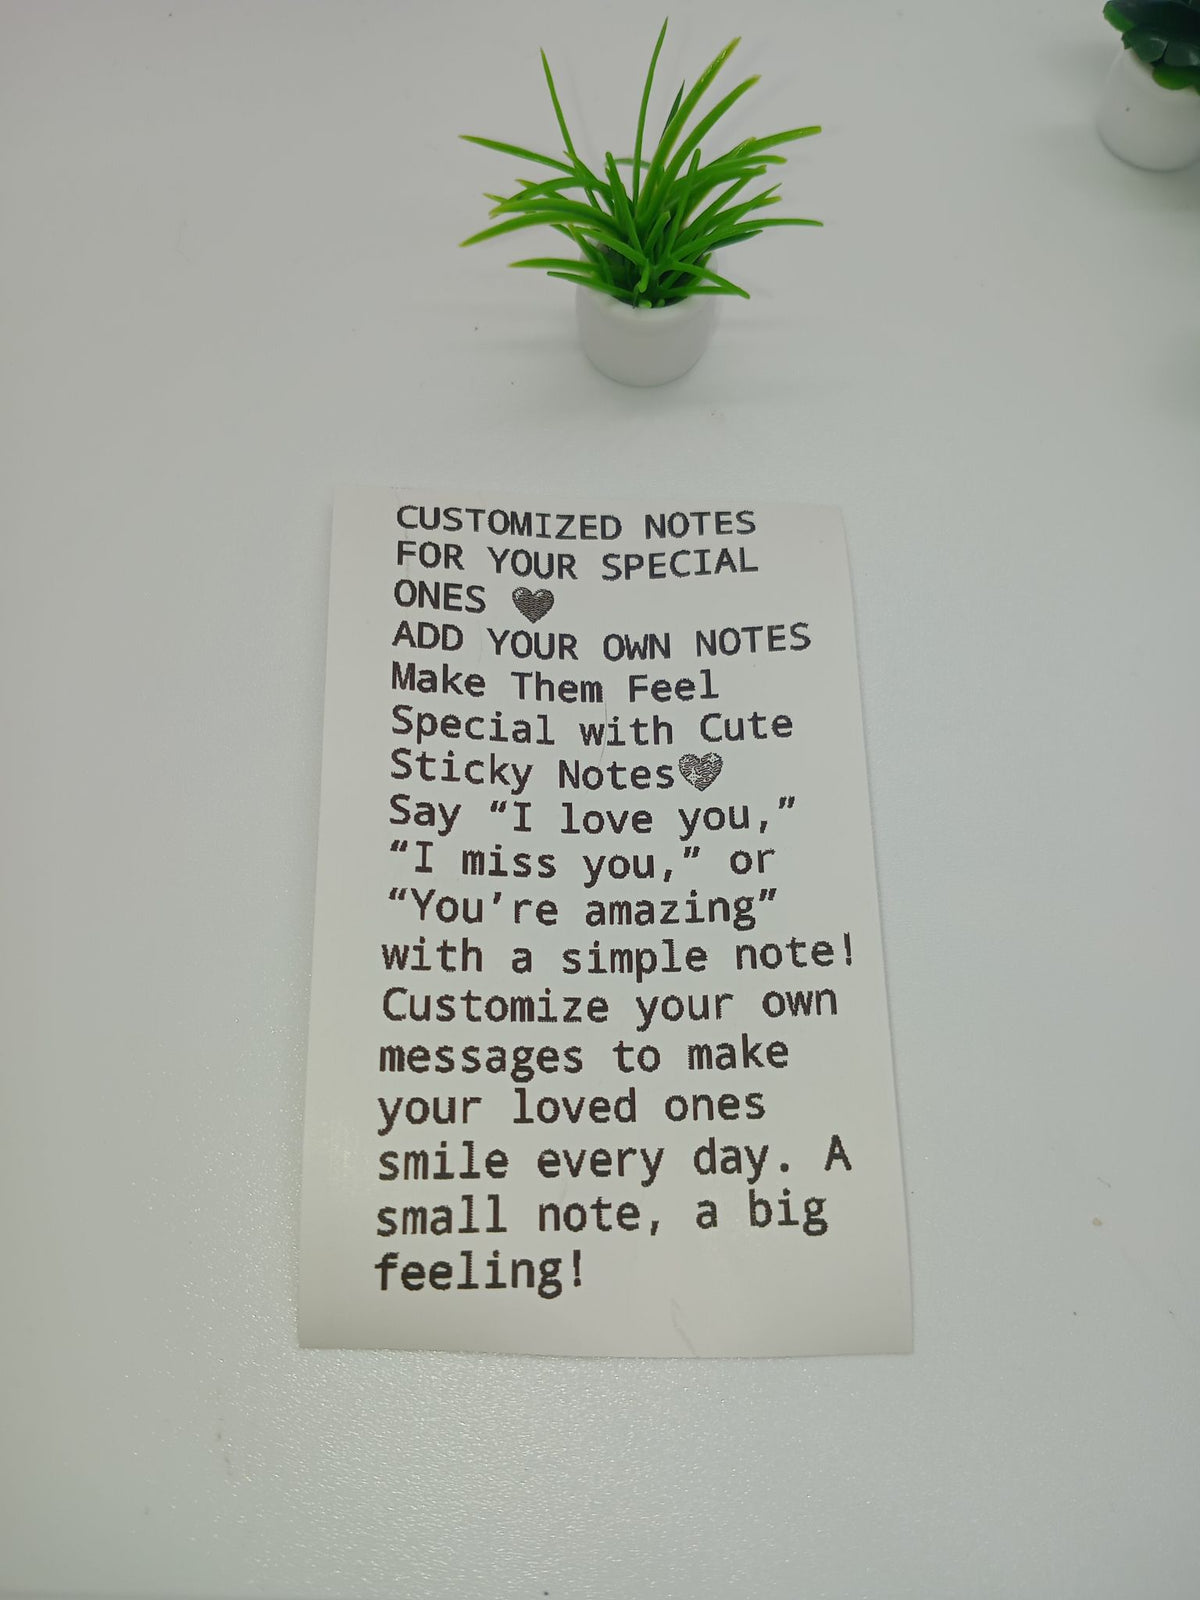 CUSTOMIZED NOTES
FOR YOUR SPECIAL
ONES 🖤
ADD YOUR OWN NOTES
Make Them Feel
Special with Cute
Sticky Notes🩶
Say “I love you,”
“I miss you,” or
“You’re amazing”
with a simple note!
Customize your own
messages to make
your loved ones
smile every day. A
small note, a big
feeling!